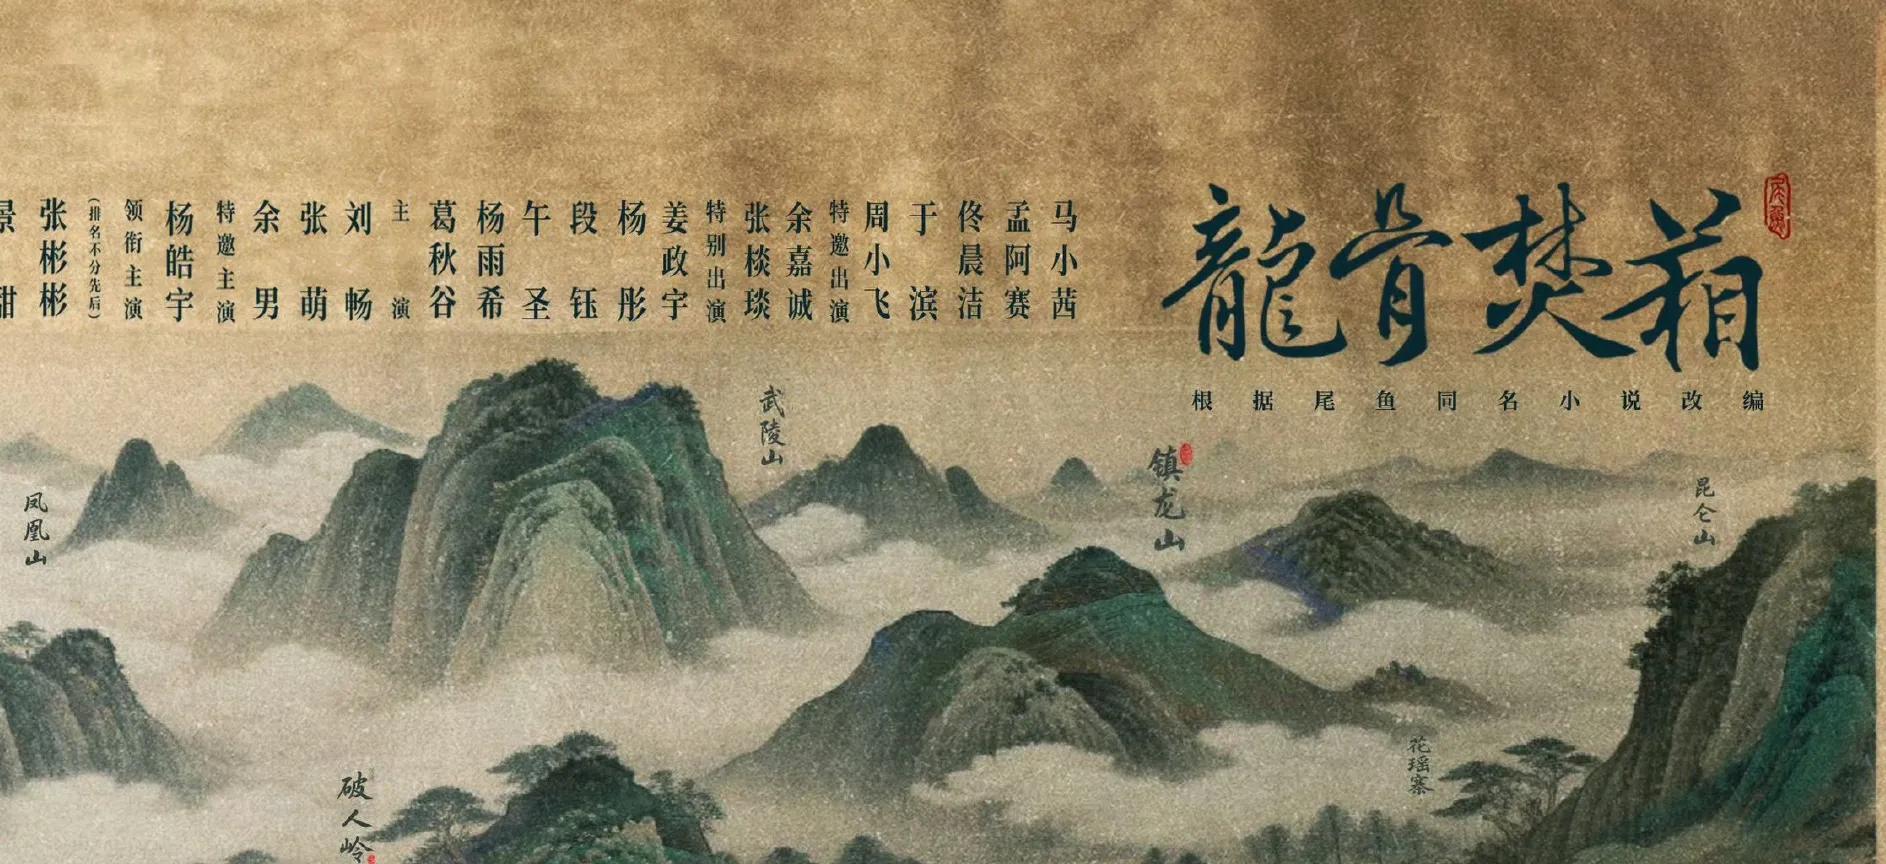 龍骨焚葙
根据尾鱼同名小说改编
马小茜
孟阿赛
佟晨洁
于滨
周小飞
特邀出演
余嘉诚
张棪琰
特别出演
姜政宇
杨彤
段钰
午圣
杨雨希
葛秋谷
主演
刘畅
张萌
余男
特邀主演
杨皓宇
领衔主演
(排名不分先后)
张彬彬
景甜
武陵山
镇龙山
昆仑山
凤凰山
花瑶寨
破人岭